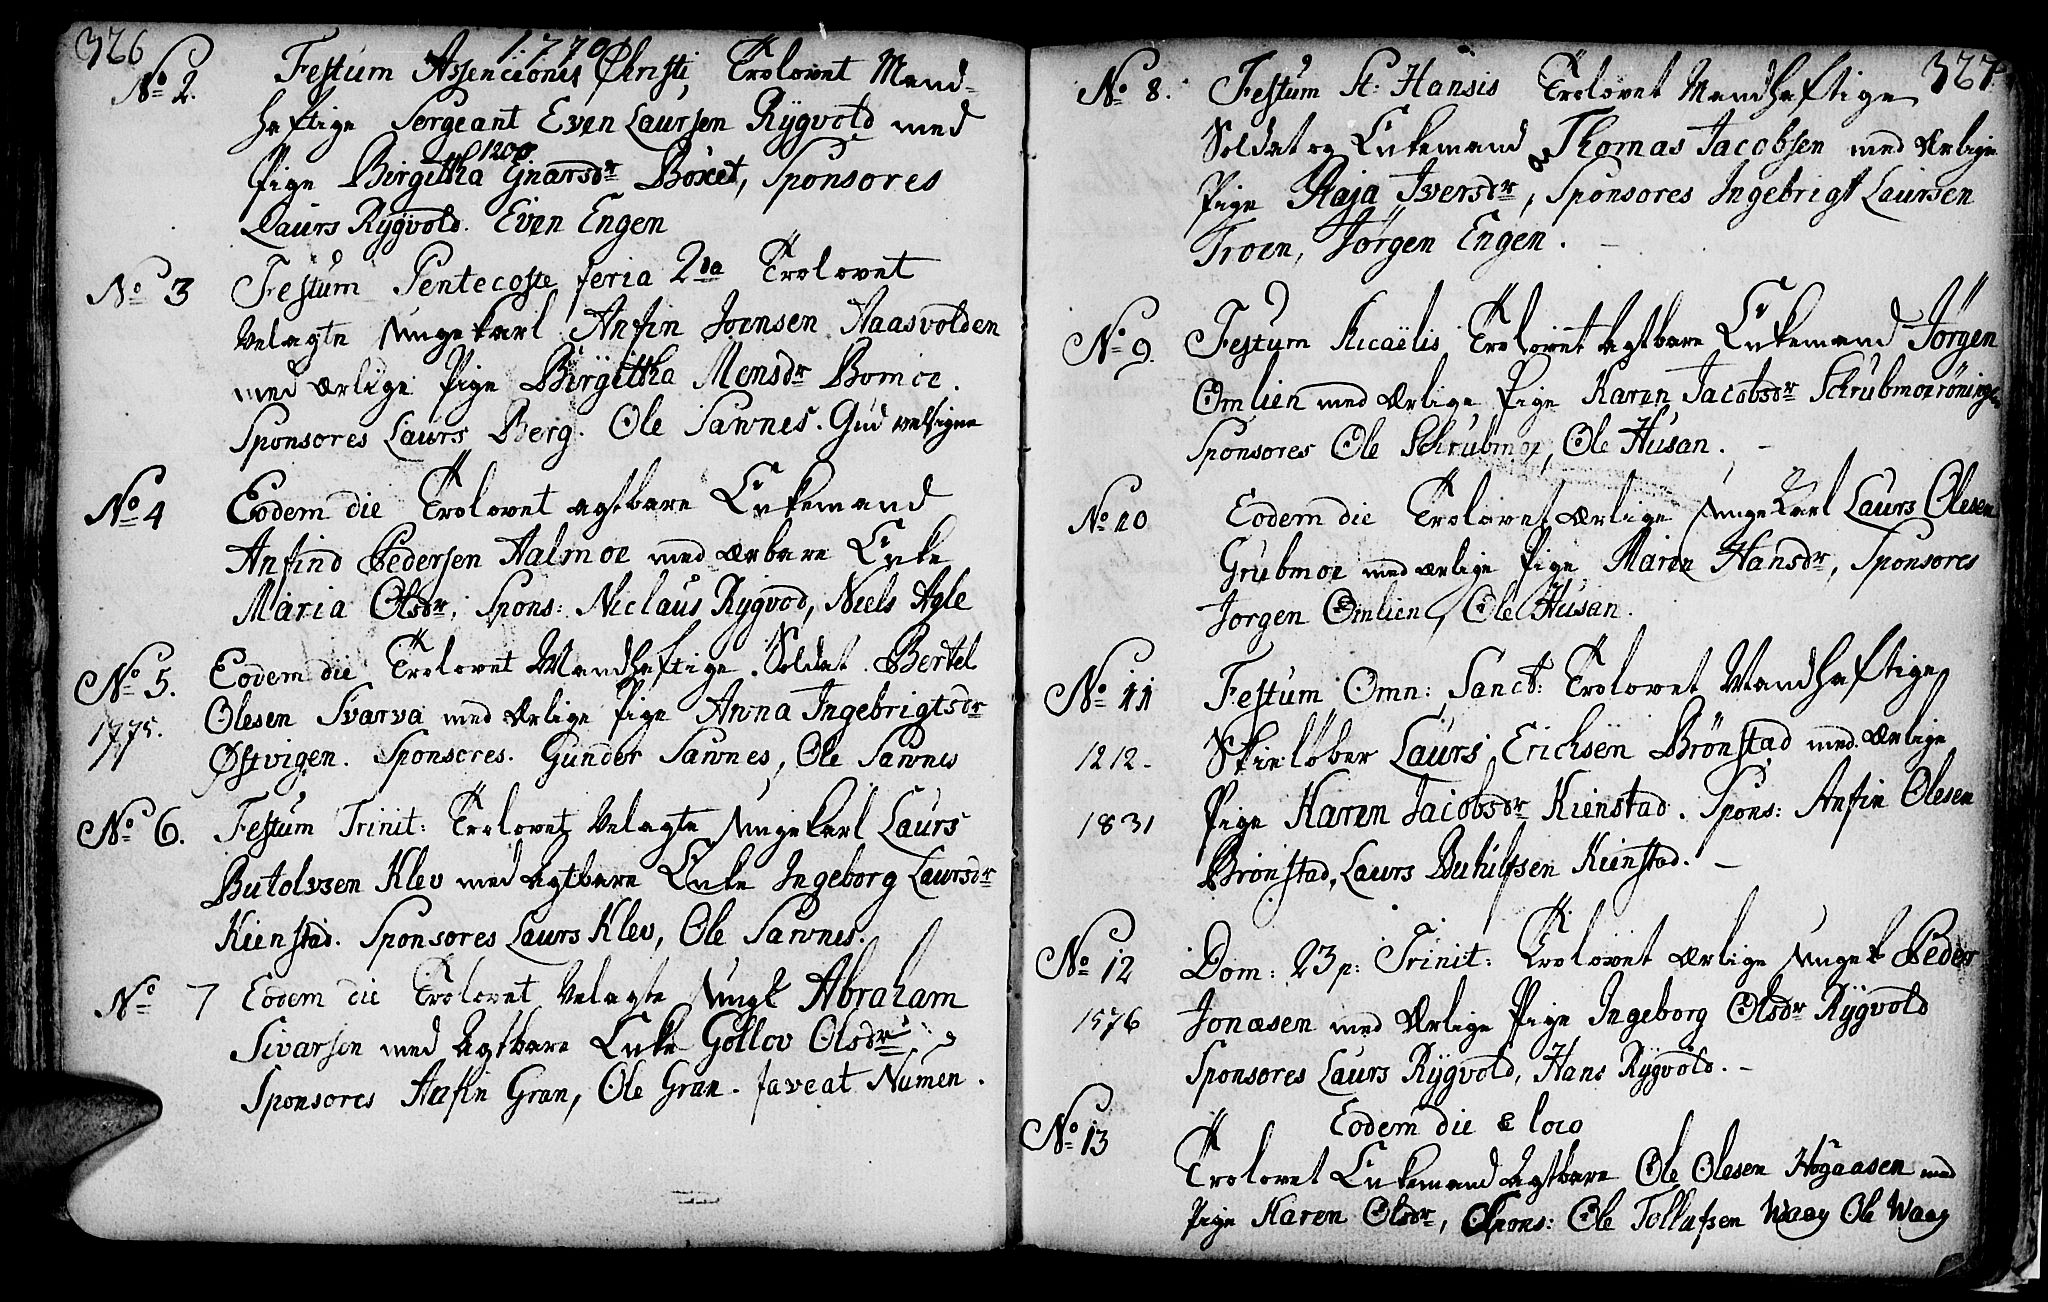 326
1770
No 2. Festum Assencionis Christi, Trolovet Mand-
haftige Sergeant Even Laursen Rygvold med
1200
Pige Birgitha Gnarsdr Boxet, Sponsores
Laurs Rygvold. Even Engen
No 3 Festum Pentecoste feria 2da Trolovet
Velagte Ungekarl Anfin Joensen Aasvolden
med ærlige Pige Birgittha Monsdr Bomoe.
Sponsores Laurs Berg. Ole Sawnes. Gud velsigne
No 4 Eodem die Trolovet agtbare Enkemand
Anfind Pedersen Aalmoe med ærbare Enke
Maria Olsdr, Spons: Niclaus Rygvod, Niels Agle
No 5. Eodem die Trolovet Mandhaftige Soldat Bertel
1775. Olesen Svarva med ærlige Pige Anna Ingebrigtsdr
Østvigen. Sponsores. Gunder Sawnes, Ole Sawnes
No 6. Festum Trinit: Trolovet Velagte Ungekarl Laurs
Butolvsen Klev med agtbare Enke Ingeborg Laursdr
Kienstad. Sponsores Laurs Klev, Ole Sawnes.
No 7 Eodem die Trolovet Velagte Ungk Abraham
Sivarsen med Agtbare Enke Gollov Olsdr
Sponsores Anfin Gran, Ole Gran. faveat Numen.
327
No 8. Festum St: Hansis Trolovet Mandhaftige
Soldat og Enkemand Thomas Jacobsen med ærlige
Pige Raja Iversdr, Sponsores Ingebrigt Laursen
Troen, Jörgen Engen.
No 9. Festum Micaëlis Trolovet agtbare Enkemand Jörgen
Omlien med ærlige Pige Karen Jacobsdr Schrubmoeröningen
Sponsores Ole Schrubmoe, Ole Husan.
No 10 Eodem die Trolovet ærlige Unge Karl Laurs Olesen
Grubmoe med ærlige Pige Maren Hansdr, Sponsores
Jorgen Omlien, Ole Husan.
No 11 Festum Omn: Sanct: Trolovet Mandhaftige
1212. Skielöber Laurs Erichsen Brönstad med ærlige
1831 Pige Karen Jacobsdr Kienstad. Spons: Anfin Olesen
Brönstad, Laurs Buhilfsen Kienstad.
No 12 Dom: 23 p: Trinit: Trolovet ærlige Ungek Peder
1576 Jonæsen med ærlige Pige Ingeborg Olsdr Rygvold
Sponsores Laurs Rygvold, Hans Rygvold.
No 13 Eodem die & loco
Trolovet Enkemand agtbare Ole Olesen Høgaasen med
Pige Karen Olsdr, Spons: Ole Tollefsen Waag Ole Waag